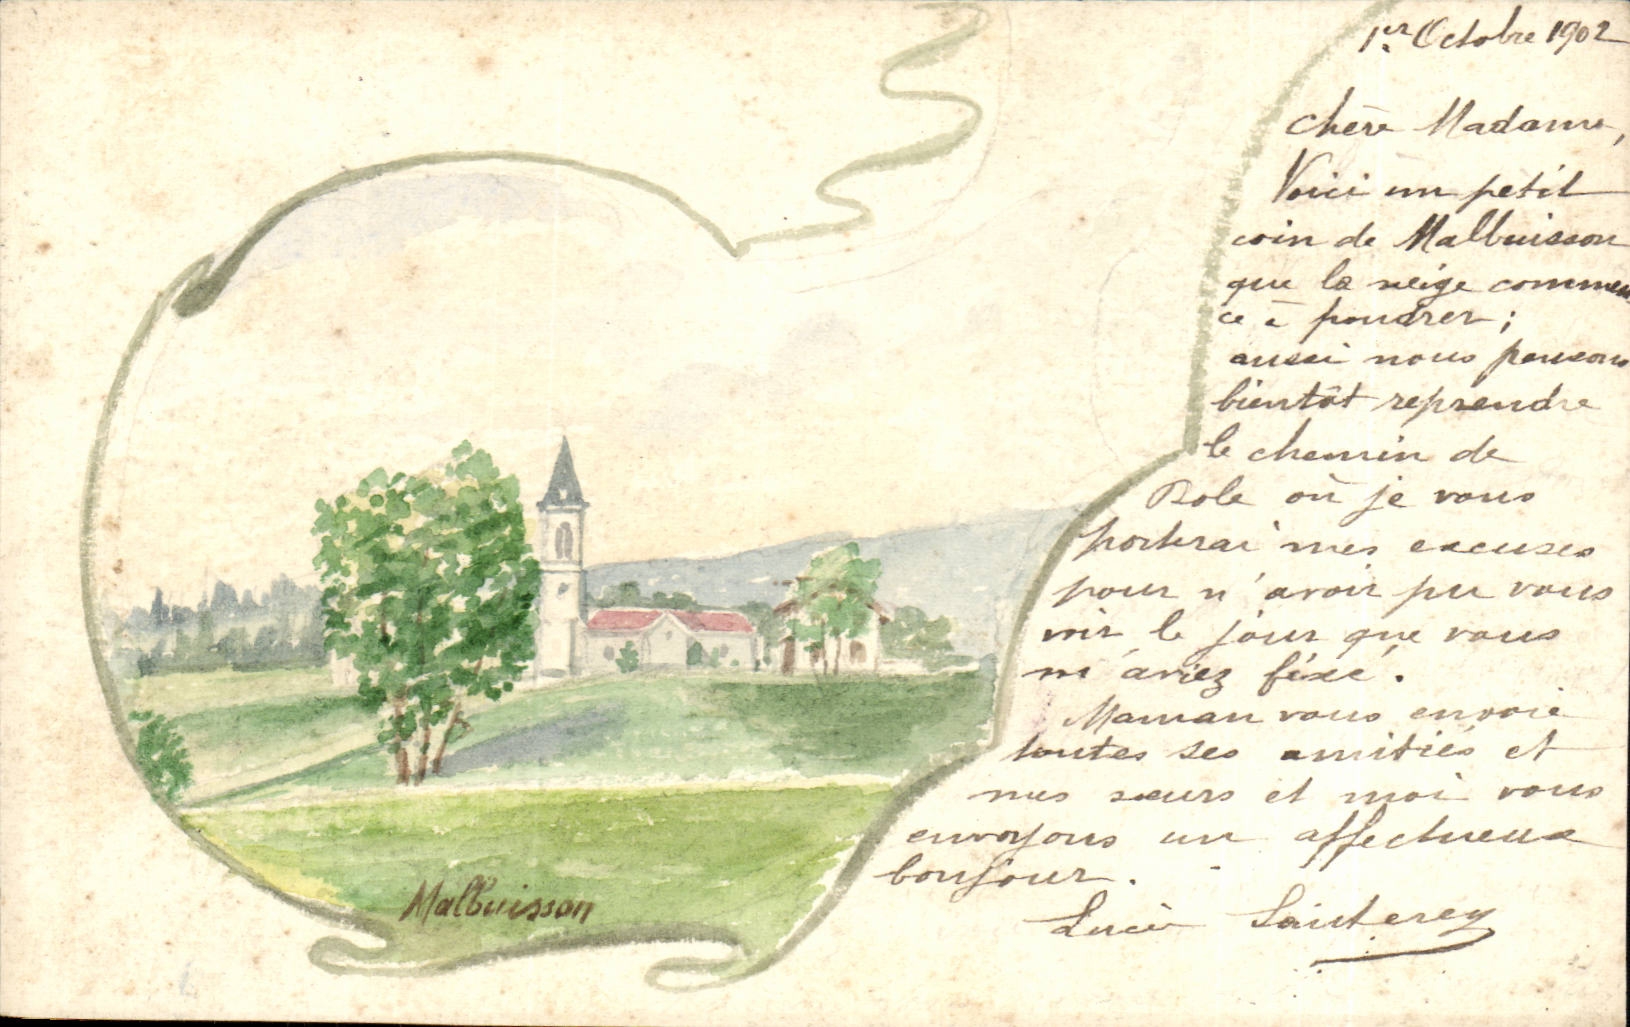 1er Octobre 1902
Chère Madame,
Voici un petit
coin de Malbuisson
que la neige commen
ce à poudrer ;
aussi nous pensons
bientôt reprendre
le chemin de
Dole où je vous
porterai mes excuses
pour n'avoir pu vous
voir le jour que vous
m'aviez fixé.
Maman vous envoie
toutes ses amitiés et
mes sœurs et moi vous
envoyons un affectueux
bonjour.
Lucie
Malbuisson